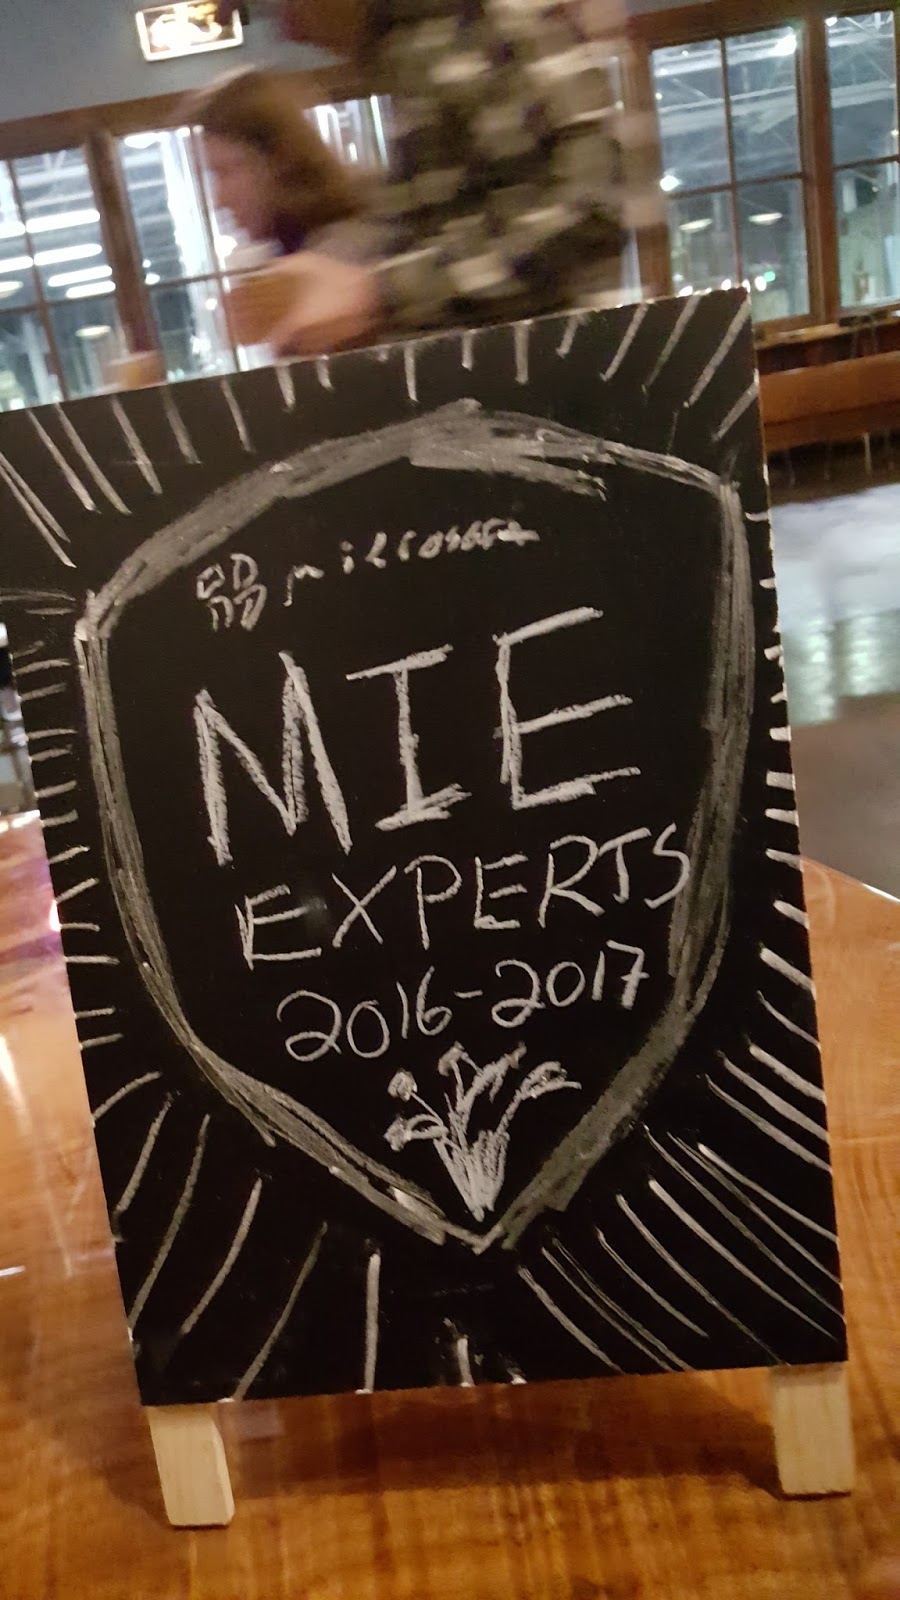 MIE
EXPERTS
2016-2017